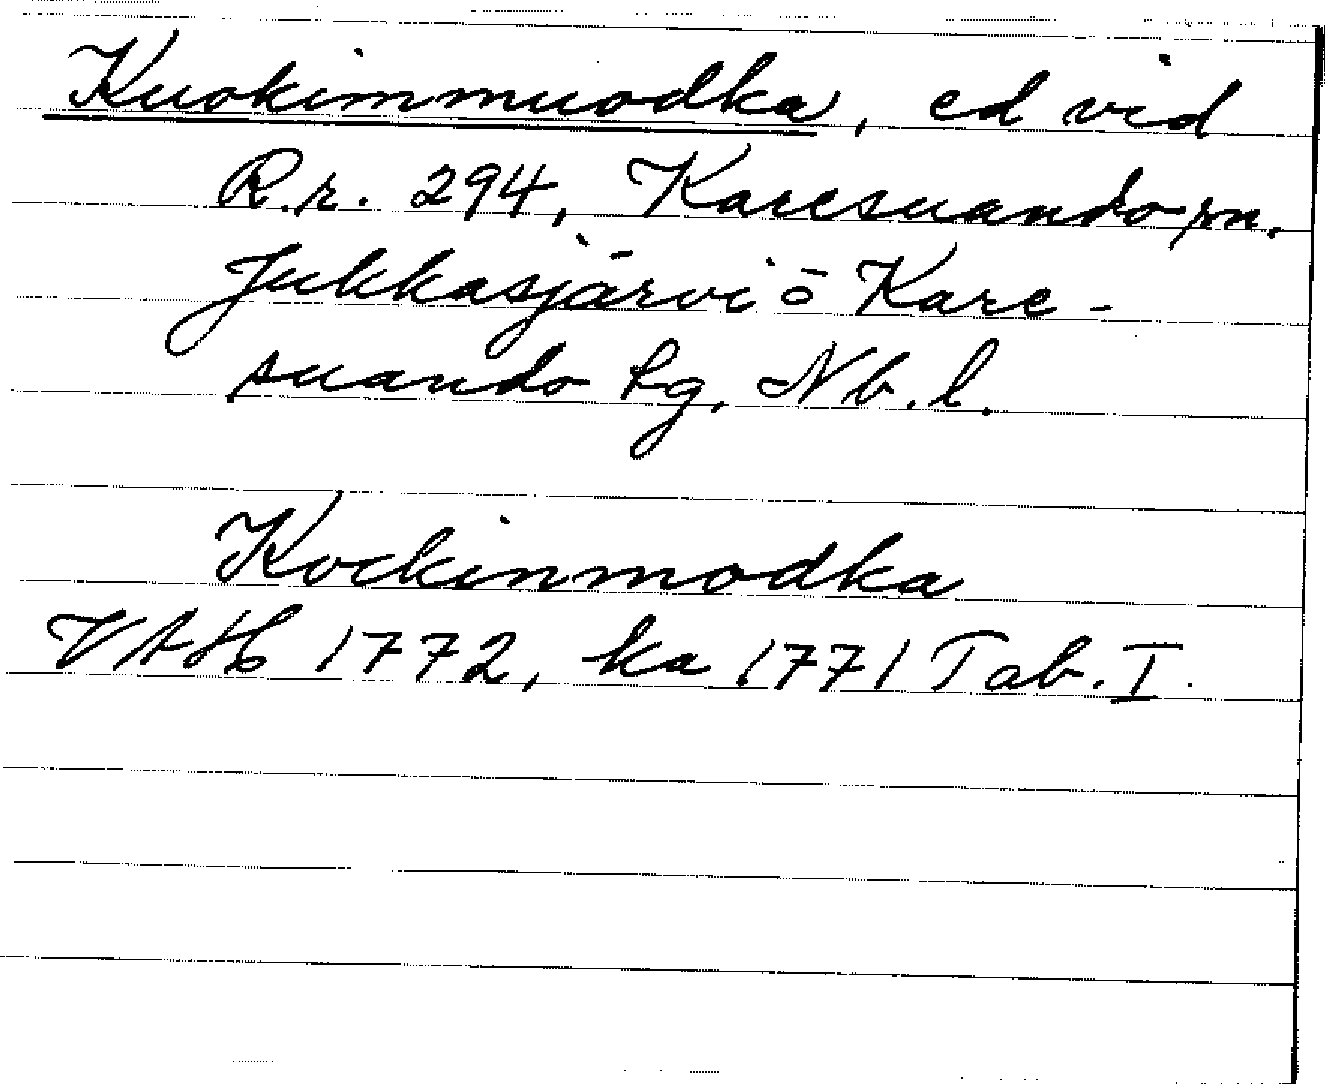 Kuokimmuodka, ed vid
R.r. 294, Karesuando sn.
Jukkasjärvi o Kare-
suando tg, Nb. l.
Kockinmodka
VAH 1772, ka 1771 Tab. I.